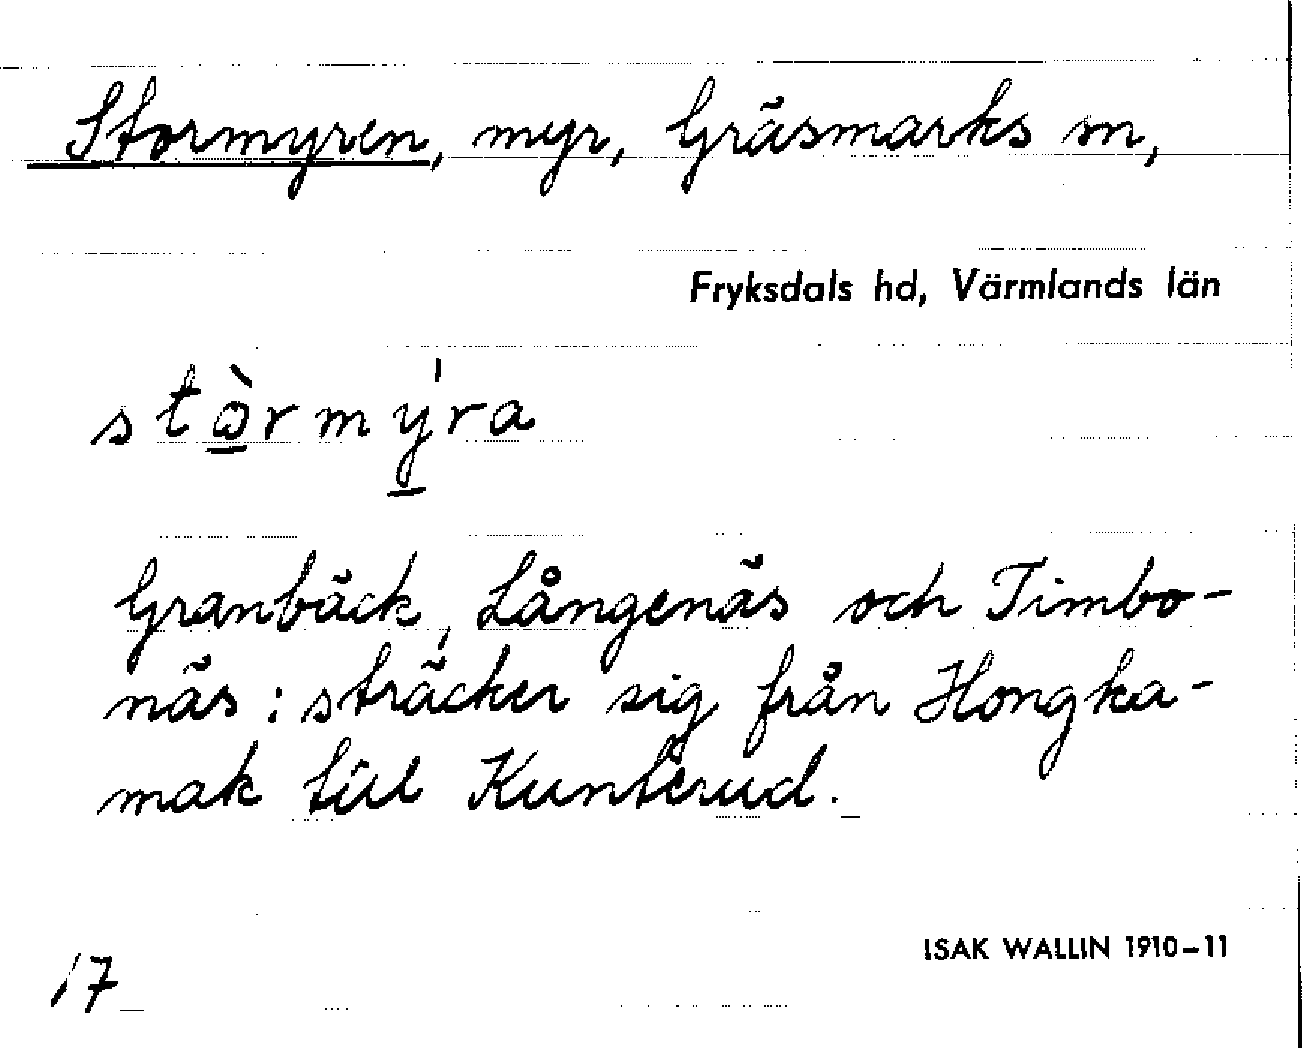 Stormyren, myr, Gräsmarks sn,
Fryksdals hd, Värmlands län
stò̱rmý̱ra
Granbäck, Långenäs och Timbo-
näs : sträcker sig från Hongka-
mak till Kunterud.
ISAK WALLIN 1910-11
17